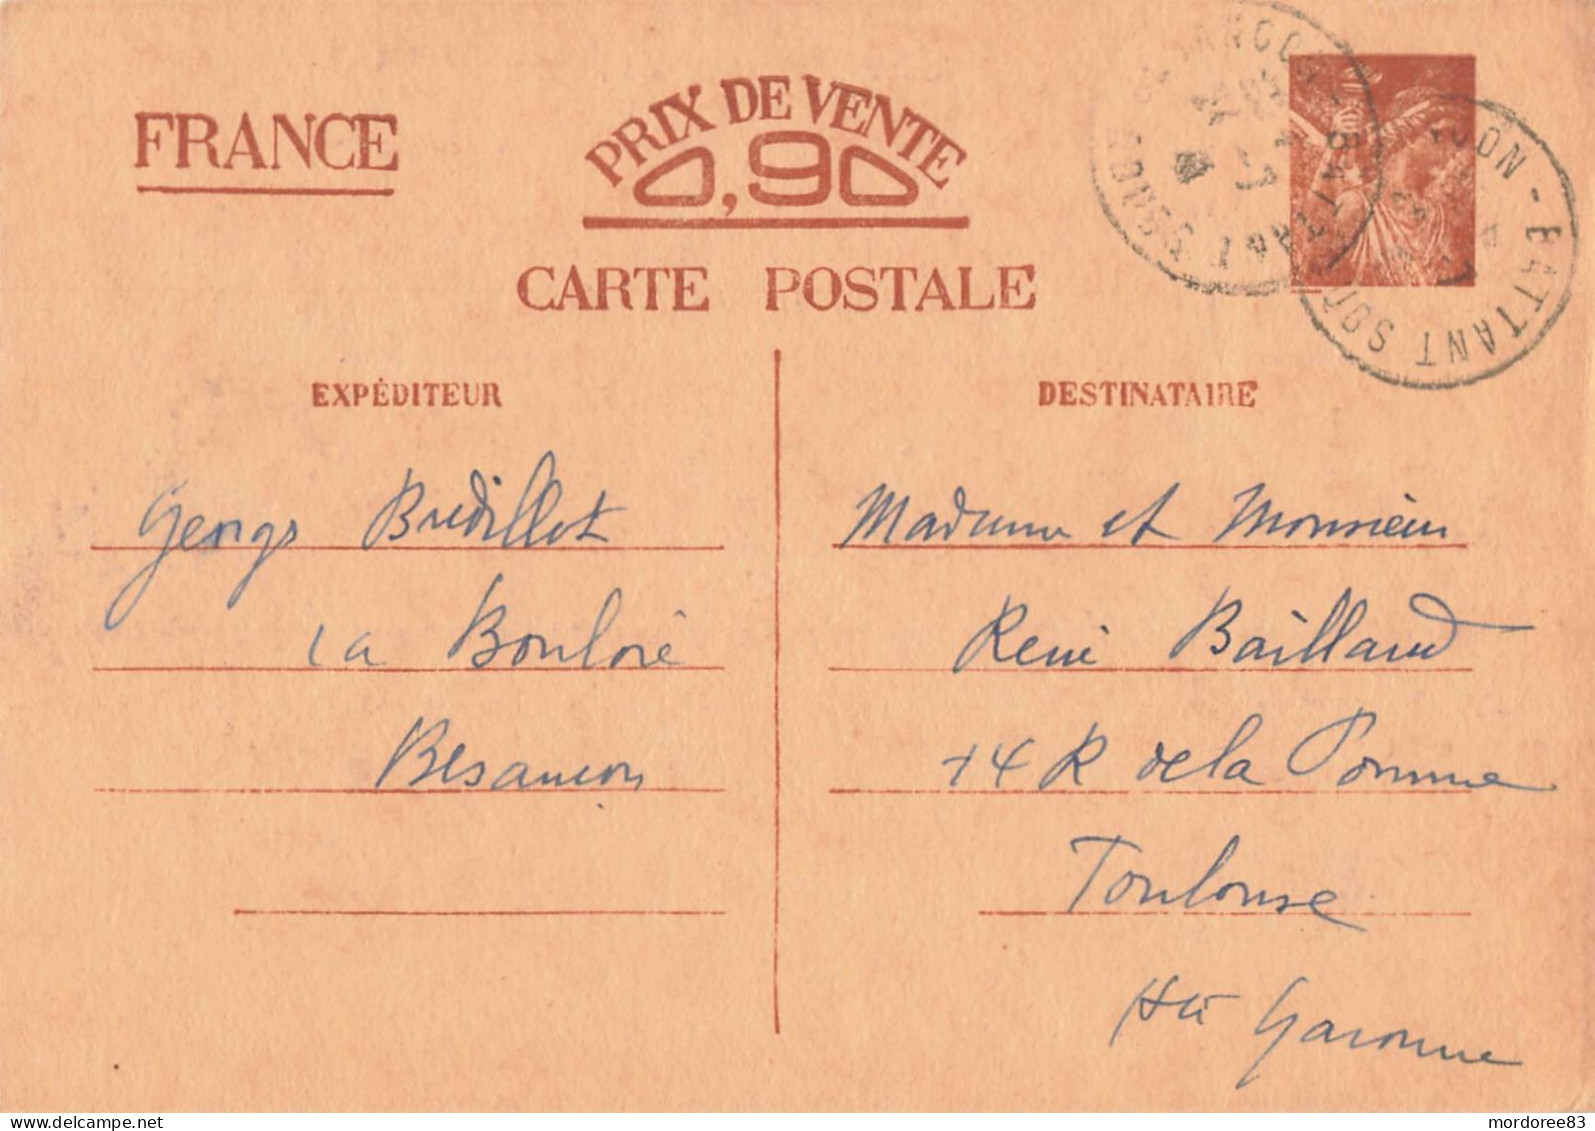 FRANCE
PRIX DE VENTE
0,90
CARTE POSTALE
EXPÉDITEUR
Georges Bredillot
La Bouloie
Besançon
DESTINATAIRE
Madame et Monsieur
René Baillaud
14 R de la Pomme
Toulouse
Hte Garonne
BATTANT
- BATTANT
mordoree83